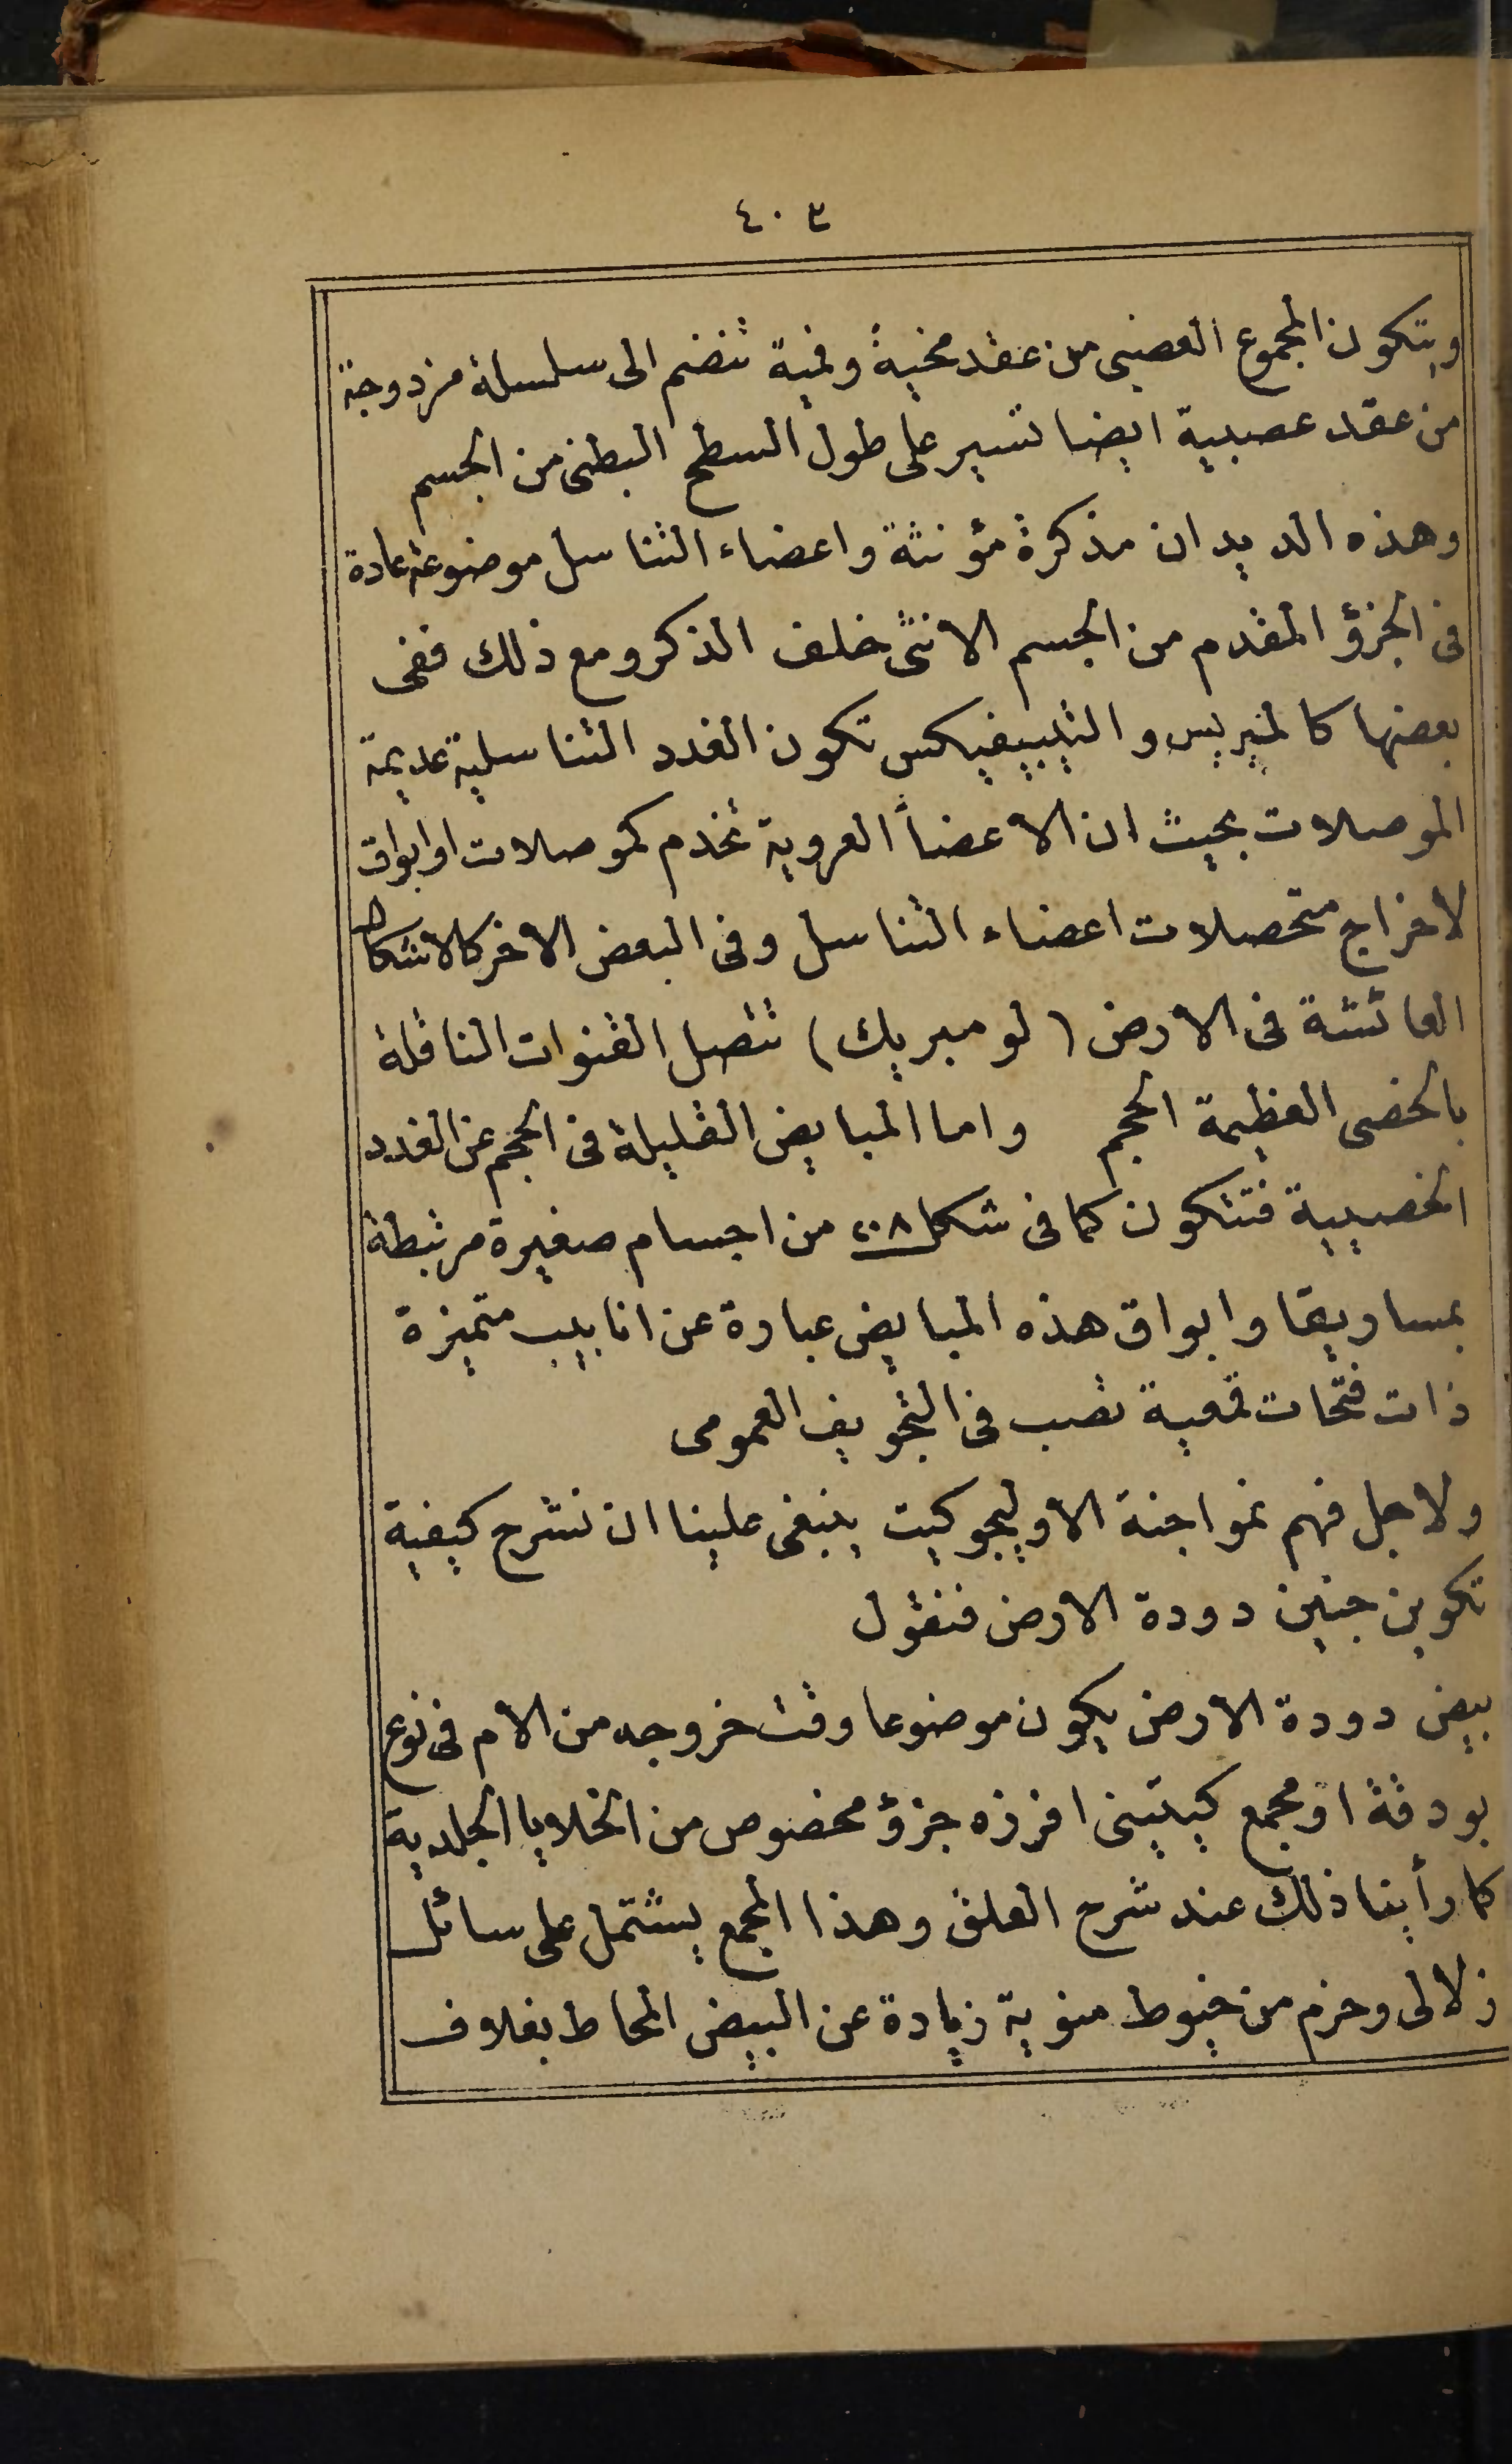 ٤٠٣
ويتكون المجموع العصبى من عقد مخية وفمية تنضم الى سلسلة مزدوجة
من عقد عصبية ايضا تسير على طول السطح البطنى من الجسم
وهذه الديدان مذكرة مؤنثة واعضاء التناسل موضوعة عادة
فى الجزؤ المقدم من الجسم الانثى خلف الذكر ومع ذلك ففى
بعضها كالنيريس والتيبيفيكس تكون الغدد التناسلية عديمة
الموصلات بحيث ان الاعضأ العروية تخدم كموصلات او ابواق
لاخراج متحصلات اعضاء التناسل وفى البعض الاخر كالاشكال
العائشة فى الارض (لومبريك) تتصل القنوات الناقلة
بالخصى العظيمة الحجم واما المبايض القليلة فى الحجم عن الغدد
الخصيية فتتكون كما فى شكل ٢٠٨ من اجسام صغيرة مرتبطة
بمساريقا وابواق هذه المبايض عبارة عن انابيب متميزة
ذات فتحات قمعية تصب فى التجويف العمومى
ولاجل فهم نمو اجنة الاوليجوكيت ينبغى علينا ان نشرح كيفية
تكوين جنين دودة الارض فنقول
بيض دودة الارض يكون موضوعا وقت خروجه من الام فى نوع
بودقة او مجمع كيتينى افرزه جزؤ مخصوص من الخلايا الجلدية
كما رأينا ذلك عند شرح العلق وهذا المجمع يشتمل على سائل
زلالى وحزم من خيوط منوية زيادة عن البيض المحاط بغلاف